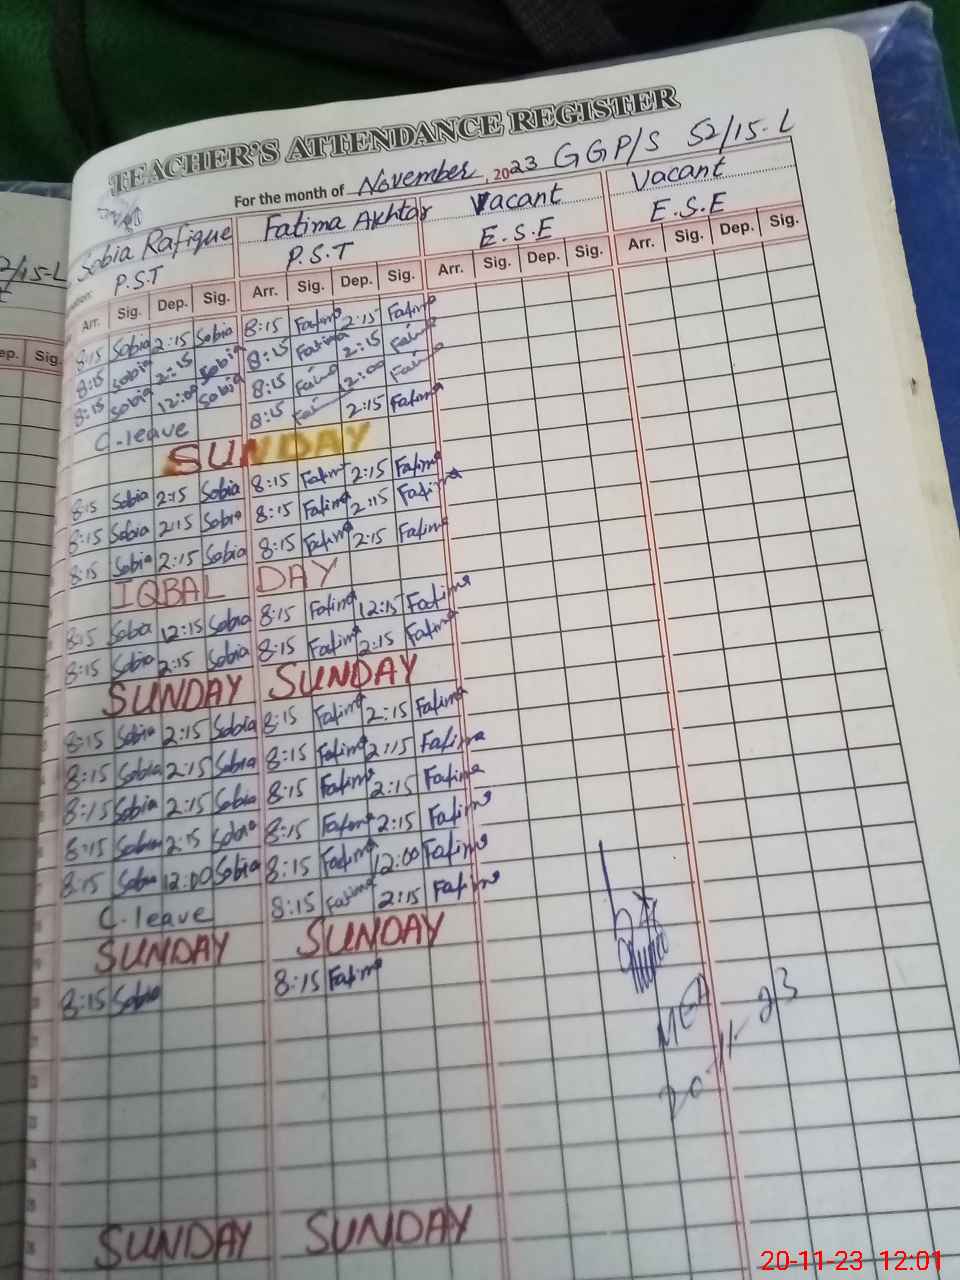 TEACHER'S ATTENDANCE REGISTER
For the month of November, 2023 GGP/S 52/15-L
Sobia Rafique Fatima Akhtar Vacant Vacant
P.S.T P.S.T E.S.E E.S.E
Arr. Sig. Dep. Sig. Arr. Sig. Dep. Sig. Arr. Sig. Dep. Sig. Arr. Sig. Dep. Sig.
8:15 Sobia 2:15 Sobia 8:15 Fatima 2:15 Fatima
8:15 Sobia 2:15 Sobia 8:15 Fatima 2:15 Fatima
8:15 Sobia 12:00 Sobia 8:15 Fatima 12:00 Fatima
C-leave 8:15 Fatima 2:15 Fatima
SUNDAY
8:15 Sobia 2:15 Sobia 8:15 Fatima 2:15 Fatima
8:15 Sobia 2:15 Sobia 8:15 Fatima 2:15 Fatima
8:15 Sobia 2:15 Sobia 8:15 Fatima 2:15 Fatima
IQBAL DAY
8:15 Sobia 12:15 Sobia 8:15 Fatima 12:15 Fatima
8:15 Sobia 2:15 Sobia 8:15 Fatima 2:15 Fatima
SUNDAY SUNDAY
8:15 Sobia 2:15 Sobia 8:15 Fatima 2:15 Fatima
8:15 Sobia 2:15 Sobia 8:15 Fatima 2:15 Fatima
8:15 Sobia 2:15 Sobia 8:15 Fatima 2:15 Fatima
8:15 Sobia 2:15 Sobia 8:15 Fatima 2:15 Fatima
8:15 Sobia 12:00 Sobia 8:15 Fatima 12:00 Fatima
C-leave 8:15 Fatima 2:15 Fatima
SUNDAY SUNDAY
8:15 Sobia 8:15 Fatima
MEA
20-11-23
SUNDAY SUNDAY
20-11-23 12:01